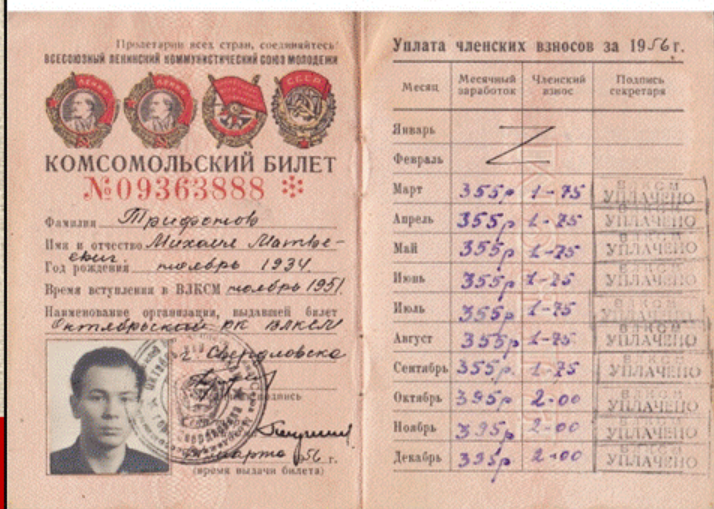 Пролетарии всех стран, соединяйтесь!
ВСЕСОЮЗНЫЙ ЛЕНИНСКИЙ КОММУНИСТИЧЕСКИЙ СОЮЗ МОЛОДЕЖИ
КОМСОМОЛЬСКИЙ БИЛЕТ
№09363888
Фамилия Трифонов
Имя и отчество Михаил Матве-
евич
Год рождения ноябрь 1934
Время вступления в ВЛКСМ ноябрь 1951
Наименование организации, выдавшей билет
Октябрьский РК ВЛКСМ
г. Свердловска
подпись
марта 1956 г.
(время выдачи билета)
Уплата членских взносов за 1956 г.
Месяц Месячный заработок Членский взнос Подпись секретаря
Январь
Февраль
Март 355р 1-75 ВЛКСМ УПЛАЧЕНО
Апрель 355р 1-75 ВЛКСМ УПЛАЧЕНО
Май 355р 1-75 ВЛКСМ УПЛАЧЕНО
Июнь 355р 1-75 ВЛКСМ УПЛАЧЕНО
Июль 355р 1-75 ВЛКСМ УПЛАЧЕНО
Август 355р 1-75 ВЛКСМ УПЛАЧЕНО
Сентябрь 355р 1-75 ВЛКСМ УПЛАЧЕНО
Октябрь 395р 2-00 ВЛКСМ УПЛАЧЕНО
Ноябрь 395р 2-00 ВЛКСМ УПЛАЧЕНО
Декабрь 395р 2-00 ВЛКСМ УПЛАЧЕНО